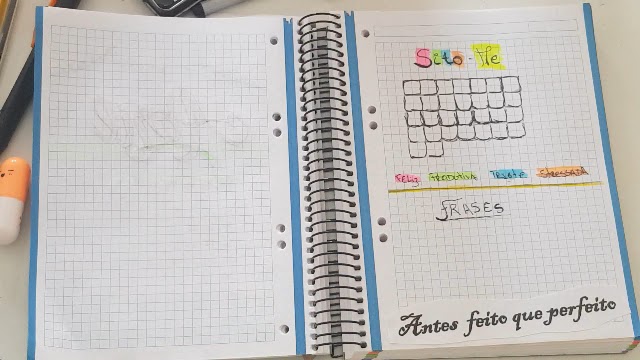 Sito-Me
Feliz Produtiva Triste Stressada
fRASES
Antes feito que perfeito